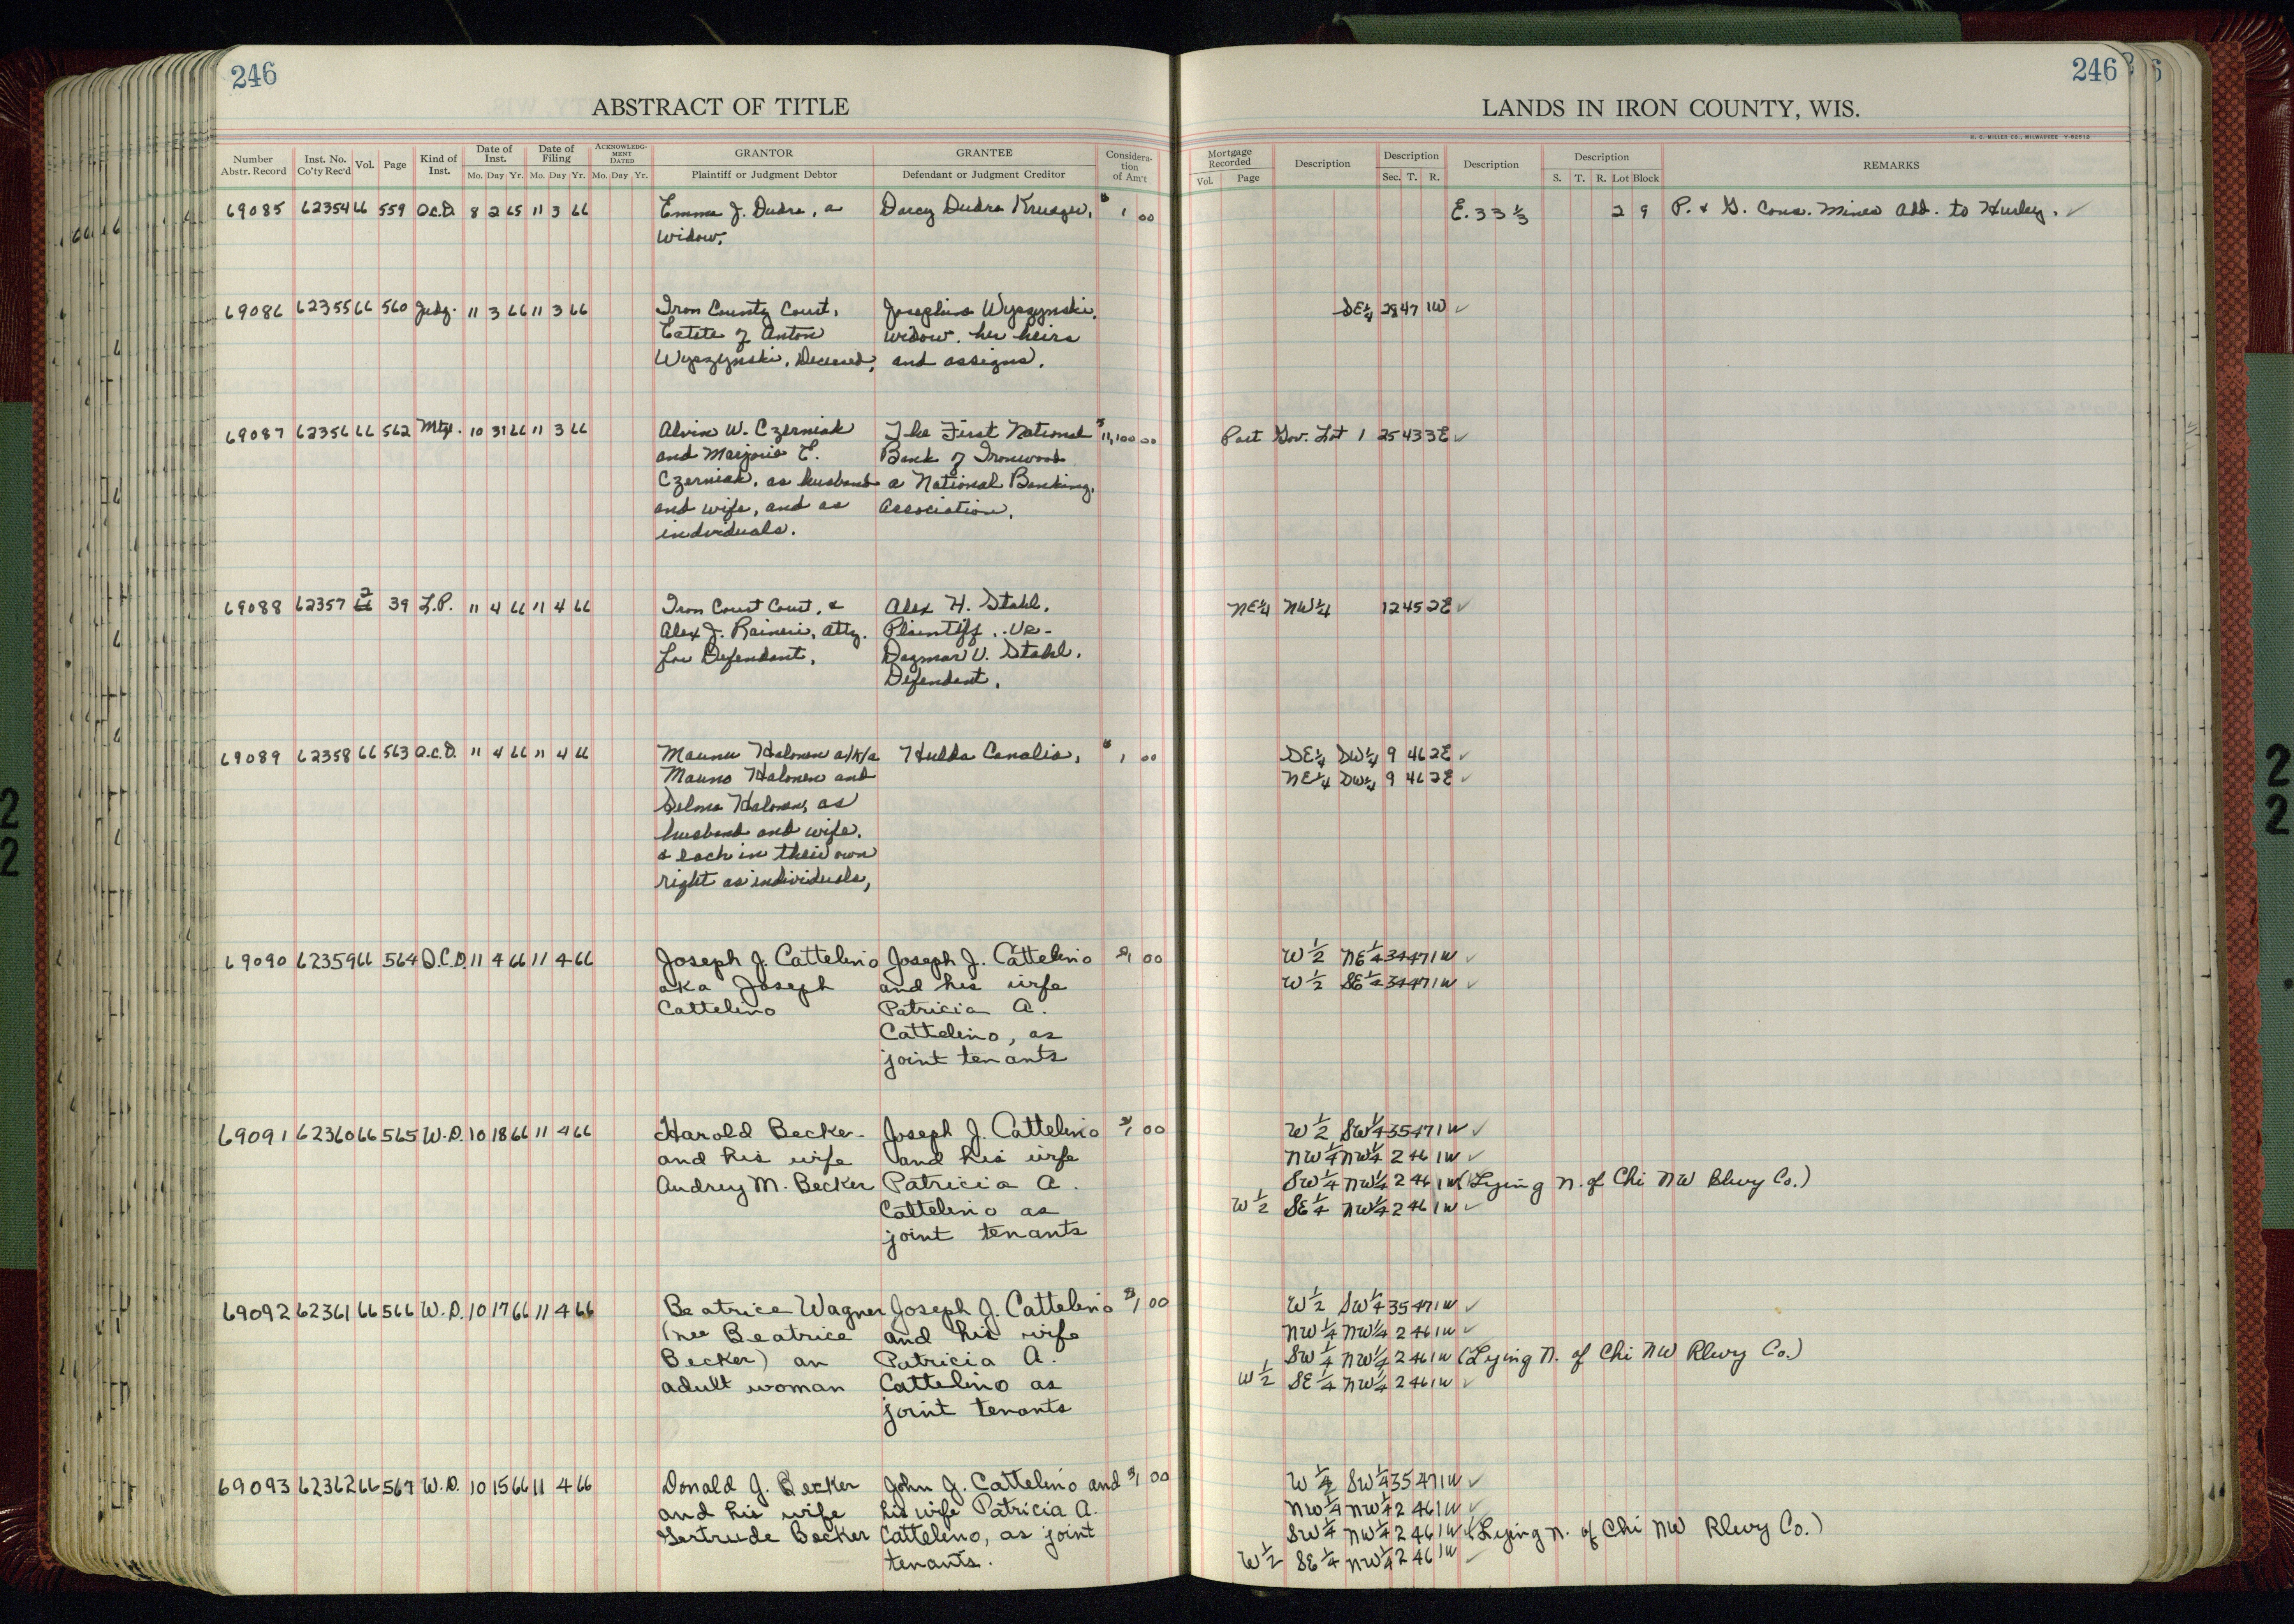 246
ABSTRACT OF TITLE
Number Abstr. Record Inst. No. Co'ty Rec'd Vol. Page Kind of Inst. Date of Inst. Mo. Day Yr. Date of Filing Mo. Day Yr. ACKNOWLEDGMENT DATED Mo. Day Yr. GRANTOR Plaintiff or Judgment Debtor GRANTEE Defendant or Judgment Creditor Consideration of Am't
69085 62354 66 559 Q.C.D. 8 2 65 11 3 66 Emma J. Dudra, a Darcy Dudra Krueger, $1 00
widow,
69086 62355 66 560 Judg. 11 3 66 11 3 66 Iron County Court, Josephine Wyszynski,
Estate of Anton widow, her heirs
Wyszynski, Deceased, and assigns.
69087 62356 66 562 Mtg. 10 31 66 11 3 66 Alvin W. Czerniak The First National $11,100 00
and Marjorie E. Bank of Ironwood
Czerniak, as husband a National Banking,
and wife, and as Association.
individuals.
69088 62357 2 39 L.P. 11 4 66 11 4 66 Iron Court Court, & Alex H. Stahl,
Alex J. Raineri, atty. Plaintiff, -vs-
for Defendant, Dagmar V. Stahl,
Defendant.
69089 62358 66 563 Q.C.D. 11 4 66 11 4 66 Maunu Halonen a/k/a Hulda Canalia, $1 00
Mauno Halonen and
Selma Halonen, as
husband and wife,
& each in their own
right as individuals,
69090 62359 66 564 Q.C.D. 11 4 66 11 4 66 Joseph J. Cattelino Joseph J. Cattelino $1 00
aka Joseph and his wife
Cattelino Patricia A.
Cattelino, as
joint tenants
69091 62360 66 565 W.D. 10 18 66 11 4 66 Harold Becker Joseph J. Cattelino $1 00
and his wife and his wife
Audrey M. Becker Patricia A.
Cattelino as
joint tenants
69092 62361 66 566 W.D. 10 17 66 11 4 66 Beatrice Wagner Joseph J. Cattelino $1 00
(nee Beatrice and his wife
Becker) an Patricia A.
adult woman Cattelino as
joint tenants
69093 62362 66 567 W.D. 10 15 66 11 4 66 Donald G. Becker John J. Cattelino and $1 00
and his wife his wife Patricia A.
Gertrude Becker Cattelino, as joint
tenants.
246
LANDS IN IRON COUNTY, WIS.
H. C. MILLER CO., MILWAUKEE
Mortgage Recorded Vol. Page Description Description Sec. T. R. Description Description S. T. R. Lot Block REMARKS
E. 33 1/3 2 9 P. & G. Cons. Mines Add. to Hurley. ✓
SE 1/4 28 47 1W ✓
Part Gov. Lot 1 25 43 3E ✓
NE 1/4 NW 1/4 12 45 2E ✓
SE 1/4 SW 1/4 9 46 2E ✓
NE 1/4 SW 1/4 9 46 2E ✓
W 1/2 NE 1/4 34 47 1W ✓
W 1/2 SE 1/4 34 47 1W ✓
W 1/2 SW 1/4 35 47 1W ✓
NW 1/4 NW 1/4 2 46 1W ✓
SW 1/4 NW 1/4 2 46 1W (Lying N. of Chi NW Rlwy Co.)
W 1/2 SE 1/4 NW 1/4 2 46 1W ✓
W 1/2 SW 1/4 35 47 1W ✓
NW 1/4 NW 1/4 2 46 1W ✓
SW 1/4 NW 1/4 2 46 1W (Lying N. of Chi NW Rlwy Co.)
W 1/2 SE 1/4 NW 1/4 2 46 1W ✓
W 1/4 SW 1/4 35 47 1W ✓
NW 1/4 NW 1/4 2 46 1W ✓
SW 1/4 NW 1/4 2 46 1W (Lying N. of Chi NW Rlwy Co.)
W 1/2 SE 1/4 NW 1/4 2 46 1W ✓
2
2
2
2